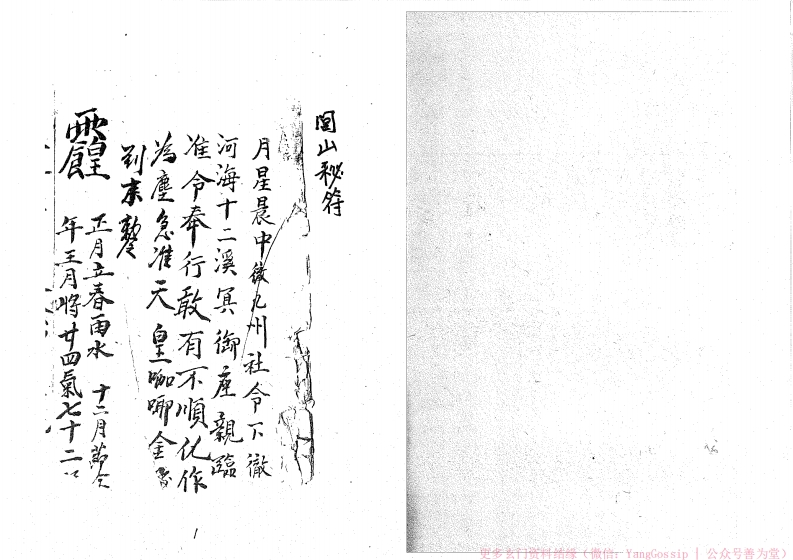 閭山秘符
月星晨中徹九州社令下徹
河海十二溪冥御座親臨
准令奉行敢有不順化作
為塵急准天皇咖唧金
到来
正月立春雨水 十二月節令
年三月將廿四氣七十二
1
更多玄门资料结缘（微信：YangGossip | 公众号善为堂）